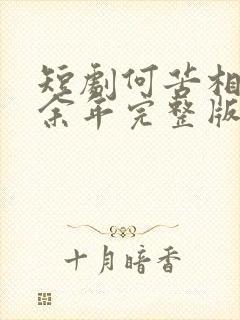 短剧何苦相
余年完整版
十月暗香